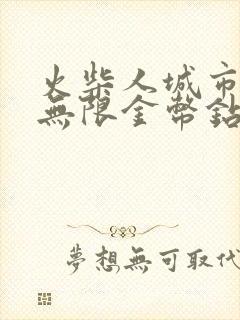 火柴人城市
無限金幣鉆
夢想無可取代